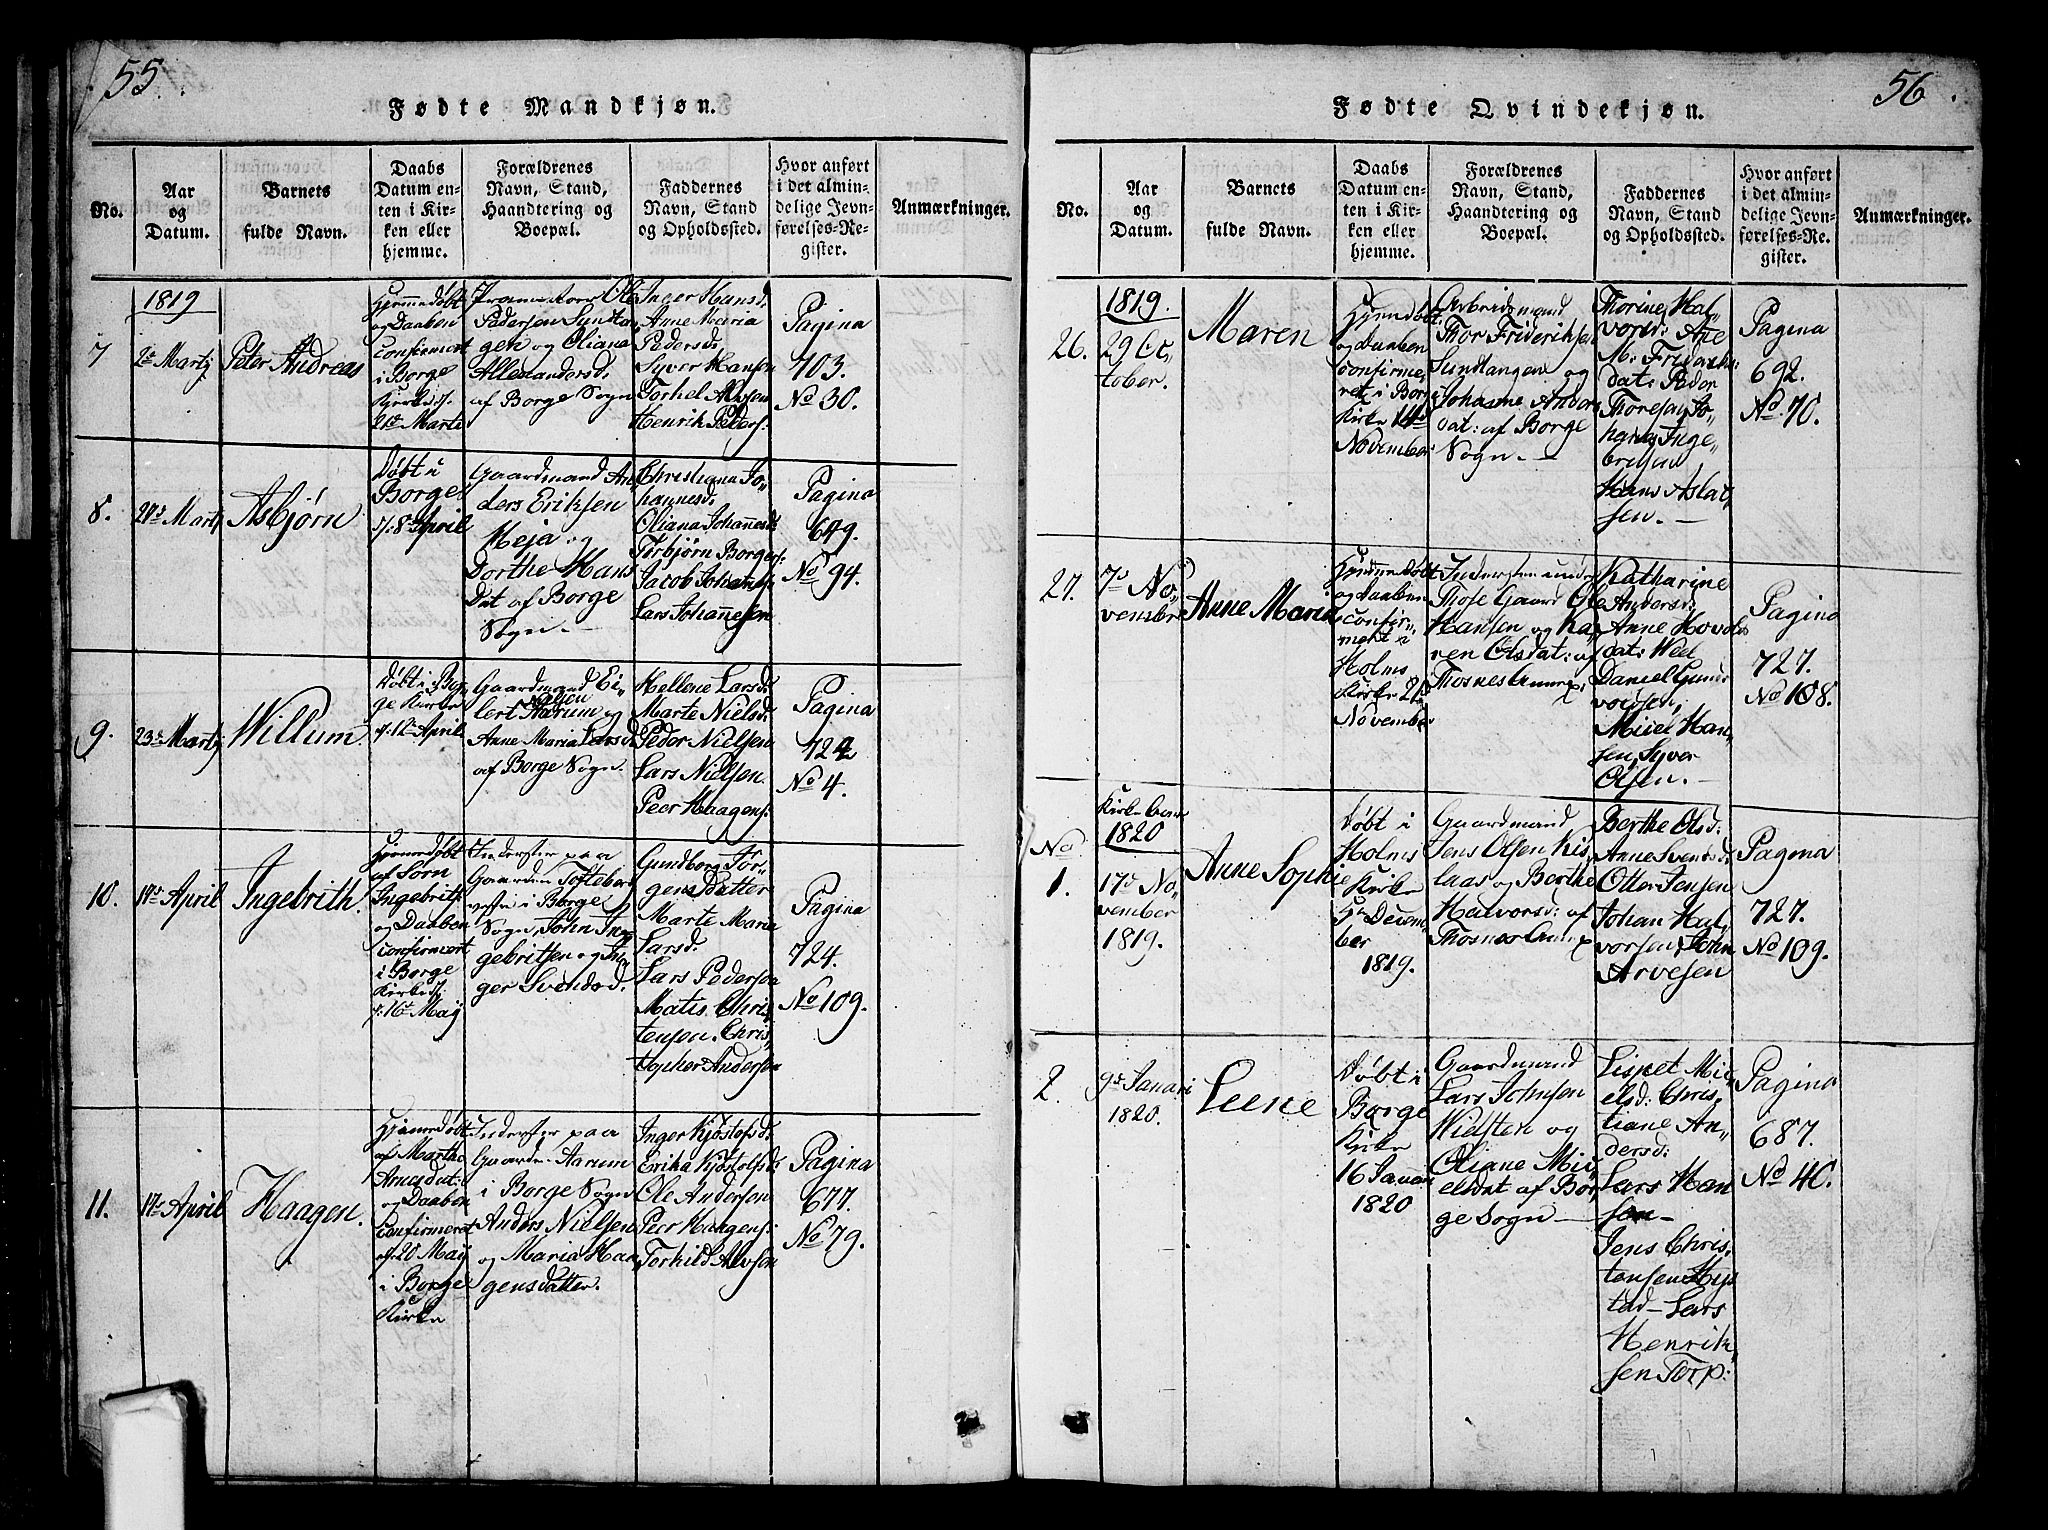 55.
Fødte Mandkjøn.
No.
Aar
og
Datum.
Barnets
fulde Navn.
Daabs
Datum en-
ten i Kir-
ken eller
hjemme.
Forældrenes
Navn, Stand,
Haandtering og
Boepæl.
Faddernes
Navn, Stand
og Opholdssted.
Hvor anført
i det almin-
delige Jevn-
førelses-Re-
gister.
Anmærkninger.
1819
7
2de Martj
Peter Andreas
Hjemmedøbt
og Daaben
confirmert
i Borge
Kirke d.
21de Marti
Ole
Pedersen Sundtan,
gen og Oliana
Allexandersd.
af Borge Sogn
Inger Hansd.
Anne Maria
Pedersd.
Syver Hansen
Torkel Alfsen
Henrik Peders:
Pagina
703.
No 30.
8.
21de Martj
Asbjørn
Døbt i
Borge
d. 8 April
Gaardmand An,
ders Eriksen
Meja og
Dorthe Hans
Dat af Borge
Sogn.
Christiana Jo,,
hannesd.
Oliana Johannesd:
Torbjørn Borgers:
Jacob Johannes:
Lars Johannesen
Pagina
649.
No 94.
9.
23de Martj
Willum.
Døbt i Bor,
ge Kirke
d. 12 April
Gaardmand Ei,
lert Aarum og
Anne Maria Larsd.
af Borge Sogn.
Hellene Larsd.
Marte Nielsd.
Peder Nielsen
Lars Nielsen
Peer Haagens:
Pagina
724
No 4.
10.
14de April
Ingebrith.
Hjemedøbt
af Sørn
Ingebritsen
og Daaben
confirmert
i Borge
Kirke d.
d. 16 Maij
Inderster paa
Gaarden Tofteberg
i Borge
Sogn, John Ing,
gebritsen og In,
ger Svendsd.
Gundborg Jør,
gens Datter
Marte Maria
Larsd.
Lars Pedersen
Matis Chris,
tensen. Chris,
topher Andersen
Pagina
724.
No 109.
11.
17de April
Haagen.
Hjemedøbt
af Marthe
Arnesdat:
og Daaben
confirmeret
d. 20 Maij
i Borge
Kirke
Inderster paa
Gaarde Aarum
i Borge Sogn
Anders Nielsen
og Maria Haa,
gensdatter.
Inger Kjøstofsd:
Erika Kjøstolfsd:
Ole Andersen
Peer Haagens:
Torkild Alvsen
Pagina
677.
No 79.
56.
Fødte Qvindekjøn.
No.
Aar
og
Datum.
Barnets
fulde Navn.
Daabs
Datum en-
ten i Kir-
ken eller
hjemme.
Forældrenes
Navn, Stand,
Haandtering og
Boepæl.
Faddernes
Navn, Stand
og Opholdssted.
Hvor anført
i det almin-
delige Jevn-
førelses-Re-
gister.
Anmærkninger.
1819.
26.
29 Oc,
tober.
Maren
Hjemdøbt
og Daaben
confirme,
ret i Borge
Kirke 14de
November
Arbeidsmand
Thor Frideriksen
Sundtangen og
Johanne Anders
dat: af Borge
Sogn.
Thorine Hal,
vorsd: Ane
M: Frideriks
dat: Peder
Thoresen, Jo,
hans Inge,
bretsen,
Hans Aslac,
sen.
Pagina
692.
No 70.
27.
7de No,
vember
Anne Maria
Hjemmedøbt
og daaben
confir,
mert i
Holms
Kirke 21
November
Indersten under
Those Gaard Ole
Hansen og Ka,
ren Olsdat: af
Thosnes Annex
Katharine
Andersd:
Anne Hovels
dat: Weel
Daniel Gund
vordsen,
Miiel Han,
sen, Syver
Olsen.
Pagina
727.
No 108.
Kirke Aaret
1820
No
1.
17de No,
vember
1819.
Anne Sophie
Døbt i
Holms
Kirke
Decem
ber
1819.
Gaardmand
Jens Olsen Kis,
laas og Berthe
Halvorsd: af
Thosnes Annex
Berthe Olsd:
Anne Svends:
Otter Jensen
Johan Hal,
vorsen, John
Arvesen
Pagina
727.
No 109.
2.
9de Januari
1820.
Leene
Døbt i
Borge
Kirke
16 Januari
1820
Gaardmand
Lars Johnsen
Wielsten og
Oliane Mii,
elsdat af Bor,
ge Sogn
Lispet Mii,
elsd: Chris,
tiane An,
dersd:
Lars Han
sen
Jens Chris,
tensen
Lars
Henrik,
sen Torp:
Pagina
687.
No 40.